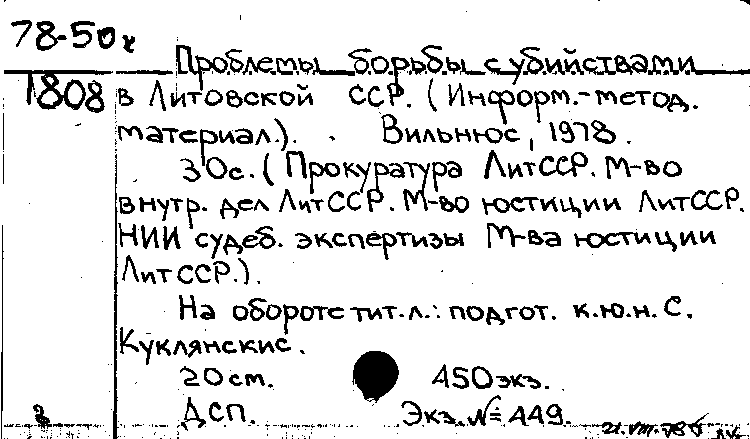 78-50х
1808
Проблемы борьбы с убийствами
в Литовской ССР. (Информ.-метод.
материал.). Вильнюс, 1978.
30с. (Прокуратура ЛитССР. М-во
внутр. дел ЛитССР. М-во юстиции ЛитССР.
НИИ судеб. экспертизы М-ва юстиции
ЛитССР.).
На обороте тит.л.: подгот. к.ю.н. С.
Куклянскис.
20 см. 450 экз.
ДСП. Экз. № 449.
21.VIII.78